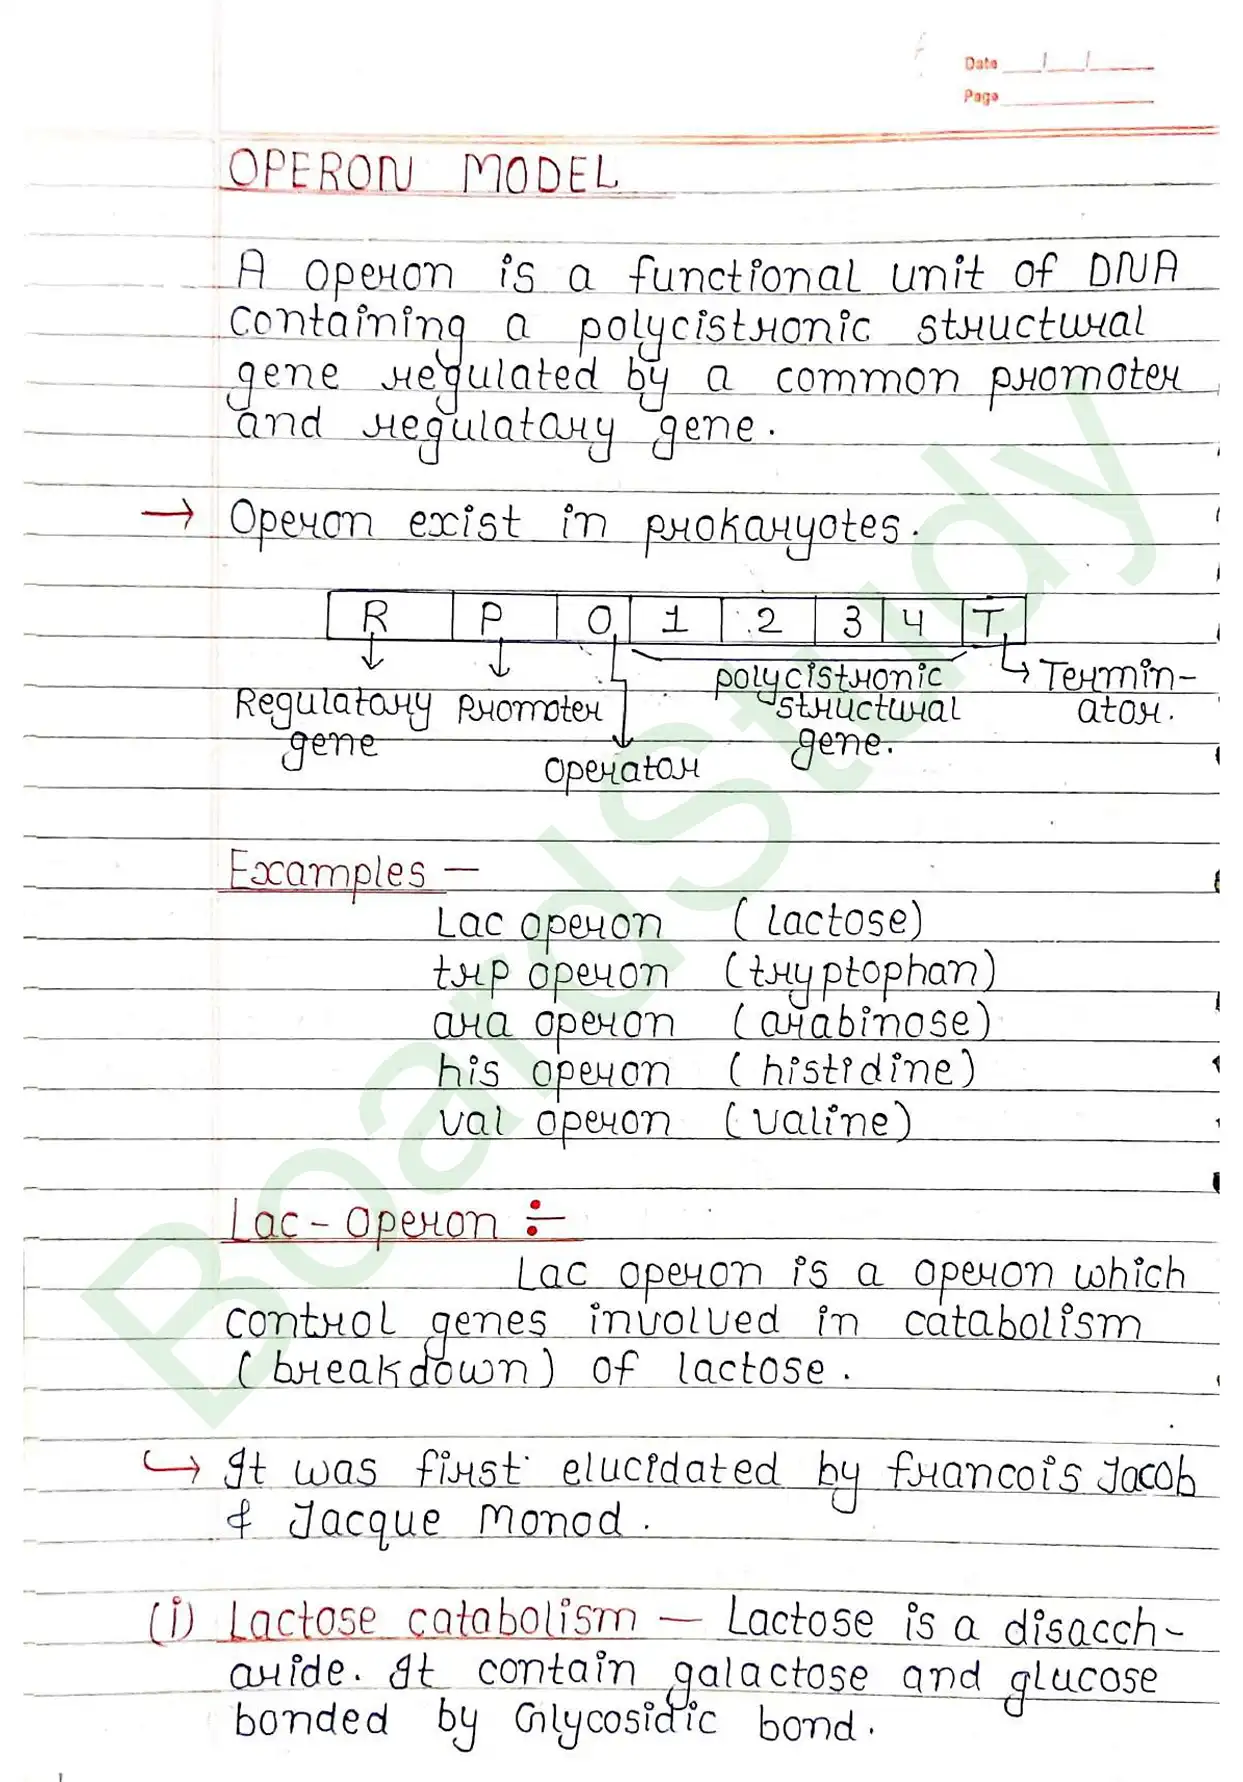 Date
Page
OPERON MODEL
A operon is a functional unit of DNA
containing a polycistronic structural
gene regulated by a common promoter
and regulatory gene.
→ Operon exist in prokaryotes.
R P O 1 2 3 4 T
Regulatory gene
promoter
operator
polycistronic structural gene.
Termin-
ator.
Examples —
Lac operon (lactose)
trp operon (tryptophan)
ara operon (arabinose)
his operon (histidine)
val operon (valine)
Lac - operon ÷
Lac operon is a operon which
control genes involved in catabolism
(breakdown) of lactose.
↪ It was first elucidated by francois Jacob
& Jacque Monod.
(i) Lactose catabolism — Lactose is a disacch-
aride. It contain galactose and glucose
bonded by Glycosidic bond.
BoardStudy